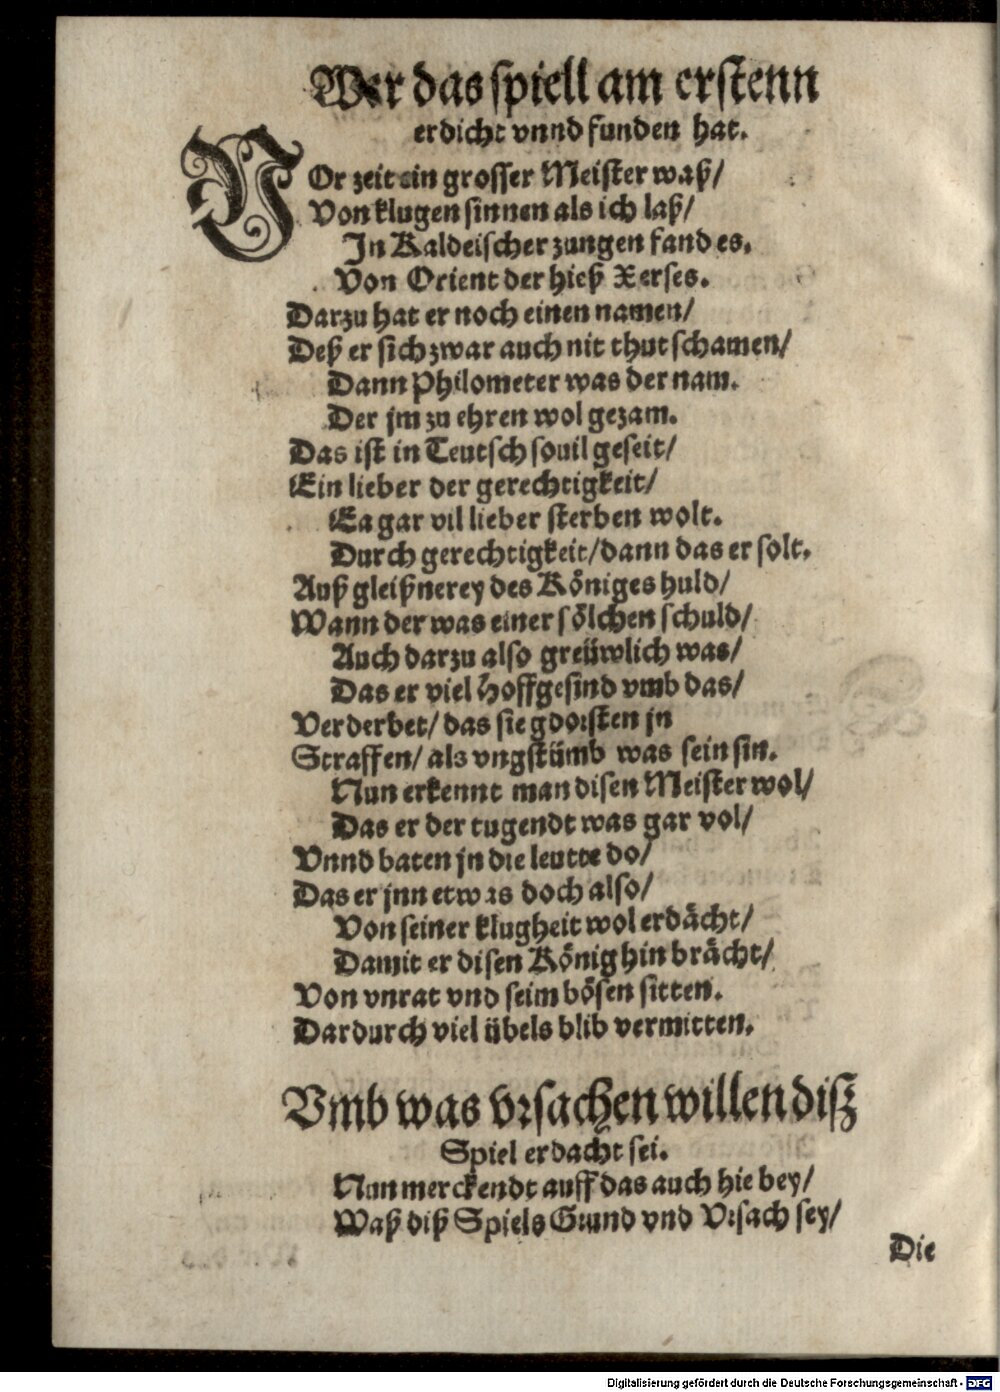 Wer das spiell am erstenn
erdicht vnnd funden hat.
VOr zeit ein grosser Meister waß/
Von klugen sinnen als ich laß/
In Kaldeischer zungen fand es.
Von Orient der hieß Xerses.
Darzu hat er noch einen namen/
Deß er sich zwar auch nit thut schamen/
Dann Philometer was der nam.
Der jm zu ehren wol gezam.
Das ist in Teutsch souil geseit/
Ein lieber der gerechtigkeit/
Ea gar vil lieber sterben wolt.
Durch gerechtigkeit/dann das er solt.
Auß gleißnerey des Königes huld/
Wann der was einer sölchen schuld/
Auch darzu also greüwlich was/
Das er viel Hoffgesind vmb das/
Verderbet/ das sie gdorsten jn
Straffen/ als vngstümb was sein sin.
Nun erkennt man disen Meister wol/
Das er der tugendt was gar vol/
Vnnd baten jn die leutte do/
Das er jnn etwas doch also/
Von seiner klugheit wol erdächt/
Damit er disen König hin brächt/
Von vnrat vnd seim bösen sitten.
Dardurch viel übels blib vermitten.
Vmb was vrsachen willen disz
Spiel erdacht sei.
Nun merckendt auff das auch hie bey/
Waß diß Spiels Grund vnd Vrsach sey/
Die
Digitalisierung gefördert durch die Deutsche Forschungsgemeinschaft - DFG